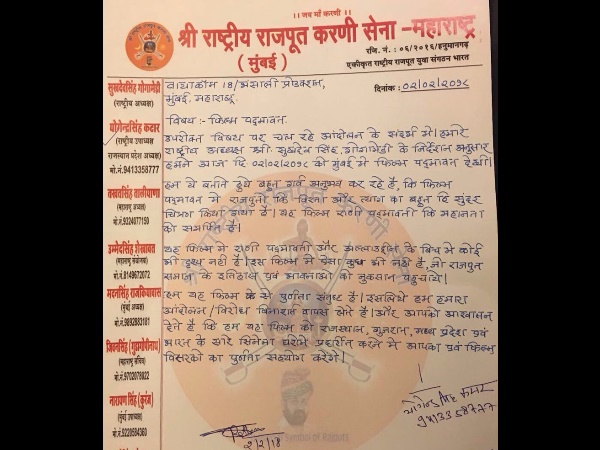 ।। जय माँ करणी ।।
श्री राष्ट्रीय राजपूत करणी सेना -महाराष्ट्र
( मुंबई )
रजि. नं. : ०६/२०१६/हनुमानगढ़
एकीकृत राष्ट्रीय राजपूत युवा संगठन भारत
दिनांक : 02/02/2018
सुखदेवसिंह गोगामेड़ी
(राष्ट्रीय अध्यक्ष)
योगेन्द्रसिंह कटार
(राष्ट्रीय उपाध्यक्ष)
राजस्थान प्रदेश अध्यक्ष
मो.नं.9413358777
(महाराष्ट्र अध्यक्ष)
मो.नं.9324077159
उम्मेदसिंह शेखावत
(महाराष्ट्र संयोजक)
मो.नं.8149672072
मदनसिंह राजकियावास
(मुंबई अध्यक्ष)
मो.नं.9892883181
जिवनसिंह
(महाराष्ट्र सचिव)
मो.नं.9702078822
नारायण सिंह (कुरंज)
(मुंबई उपाध्यक्ष)
मो.नं.9220584360
वायाकॉम 18/भंसाली प्रोडक्शन,
मुंबई, महाराष्ट्र.
विषय :- फिल्म पद्मावत.
उपरोक्त विषय पर चल रहे आंदोलन के संदर्भ में हमारे
राष्ट्रीय अध्यक्ष श्री सुखदेव सिंह गोगामेडी के निर्देशन अनुसार
हमने आज दि 02/02/2018 को मुंबई में फिल्म पद्मावत देखी।
हम ये बताने हुये बहुत गर्व अनुभव कर रहे है, कि फिल्म
पद्मावत में राजपुतो कि विरता और त्याग का बहुत हि सुंदर
चित्रण किया गया है। यह फिल्म राणी पद्मावती कि महानता
को समर्पित है।
यह फिल्म में राणी पद्मावती और अल्लाउद्दीन के बिच में कोई
भी दृश्य नहीं है। इस फिल्म में ऐसा कुछ भी नहीं है, जो राजपूत
समाज के इतिहास एवं भावनाओ को नुकसान पहुचाये।
हम यह फिल्म से पुर्णतः संतुष्ट है। इसलिये हम हमारा
आंदोलन / विरोध बिनाशर्त वापस लेते है। और आपको आश्वासन
देते है कि हम यह फिल्म को राजस्थान, गुजरात, मध्य प्रदेश एवं
भारत के सारे सिनेमा घरोमें प्रदर्शित करने में आपका एवं फिल्म
वितरको का पुर्णतः सहयोग करेंगे।
2/2/18
9413358777
Symbol of Rajputs